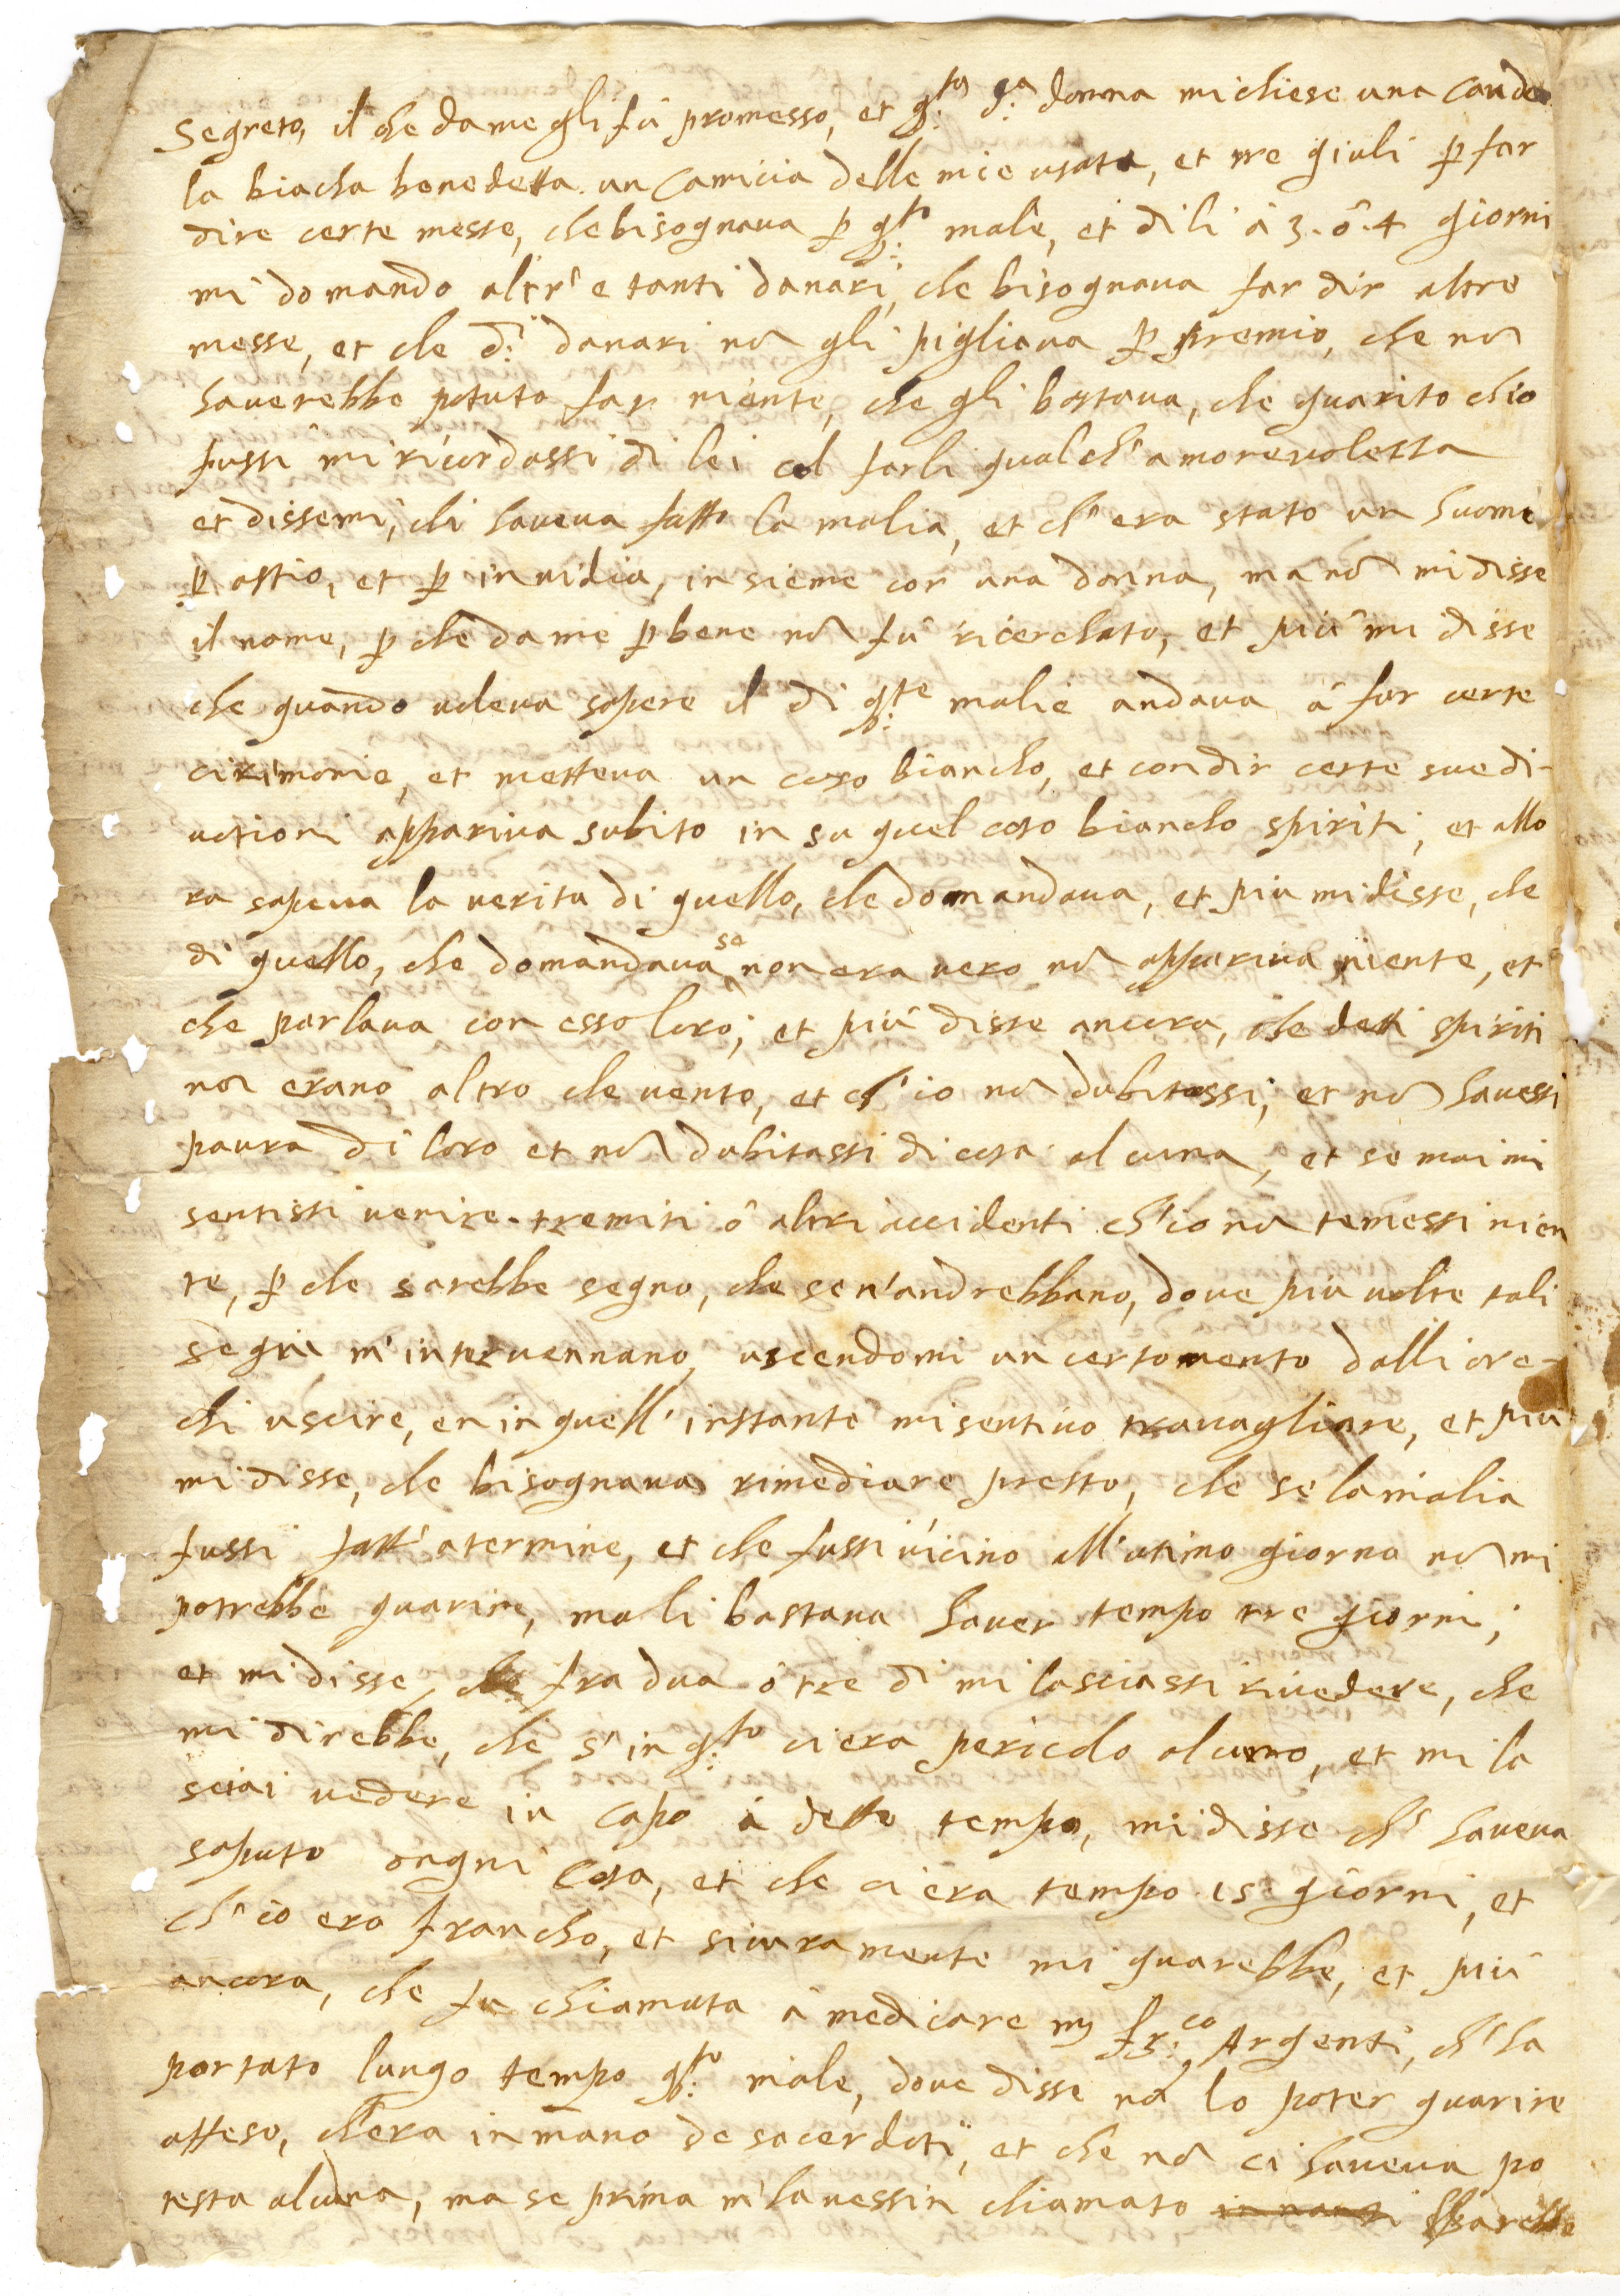 segreto, il che da me gli fù promesso, et q.ta d.a donna mi chiese una cande
la biacha benedetta un camicia delle mie usata, et tre giuli p far
dire certe messe, che bisognava p q.to male, et di li à 3. ô. 4 giorni
mi domandò altr'e tanti danari, che bisognava far dir altre
messe, et che d.i danari nõ gli pigliava p premio, che nõ
haverebbe potuto far niente, che gli bastava, che guarito ch'io
fussi mi ricordassi di lei col farli qualch'amorevolessa
et dissemi, chi haveva fatto la malia, et ch'era stato un huomo
p astio, et p invidia, insieme con una donna, ma nõ mi disse
il nome, p che da me p bene nõ fù ricerchato, et più mi disse
che quando voleva sapere il di q.te malie andava à far certe
cirimonie, et metteva un coso biancho, et con dir certe sue di-
votioni appariva subito in su quel coso biancho spiriti, et allo
ra sapeva la verita di quello, che domandava, et più mi disse, che
di quello, che domandava se non era vero nõ appariva niente, et
che parlava con esso loro; et più disse ancora, che detti spiriti
non erano altro che vento, et ch'io nõ dubitassi, et nõ havessi
paura di loro et nõ dubitassi di cosa alcuna, et se mai mi
sentissi venire tremiti ô altri accidenti ch'io nõ temessi nien
te, p che sarebbe segno, che se n'andrebbano, dove più volte tali
segni m'intervennano, uscendomi un certo vento dalli ore-
chi uscire, en in quell'instante mi sentivo travagliare, et più
mi disse, che bisognava rimediare presto, che se la malia
fussi fatt'a termine, et che fussi vicino all'utimo giorno nõ mi
potrebbe guarire, ma li bastava haver tempo tre giorni;
et mi disse, che fra dua ô tre di mi lasciassi rivedere, che
mi direbbe, che s'in q.to ci era pericolo alcuno, et mi la
sciai vedere in capo à detto tempo, mi disse ch'haveva
saputo ongni cosa, et che ci era tempo 15 giorni, et
ch'io ero francho, et sicuramente mi guarebbe, et più
ancora, che fu chiamata à medicare m fr.co Argenti, ch'ha
portato lungo tempo q.to male, dove disse nõ lo poter guarire
atteso, ch'era in mano de sacerdoti, et che nõ ci haveva po
testa alcuna, ma se prima m'havessin chiamato